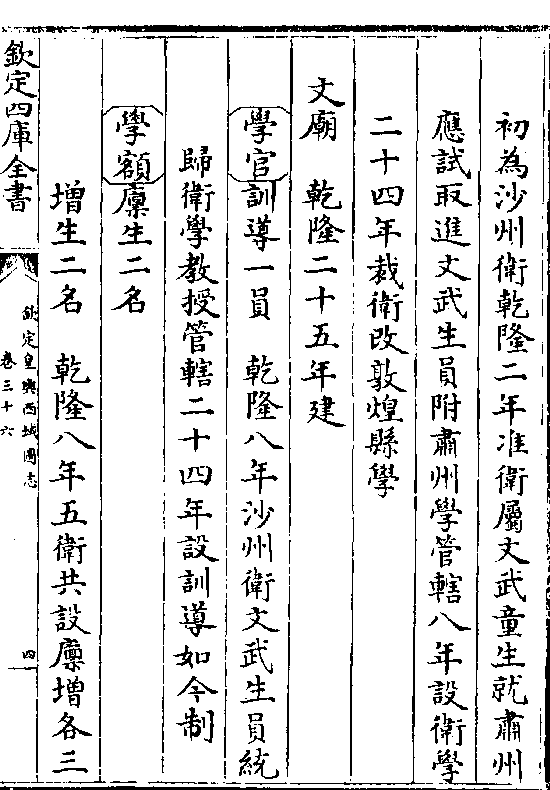 初為沙州衛乾隆二年准衛屬文武童生就肅州
應試取進文武生員附肅州學管轄八年設衛學
二十四年裁衛改敦煌縣學
文廟　乾隆二十五年建
學官訓導一員　乾隆八年沙州衛文武生員統
歸衛學教授管轄二十四年設訓導如今制
學額廪生二名
增生二名　乾隆八年五衛共設廪增各三
欽定四庫全書
欽定皇輿西域圖志
卷三十六
四